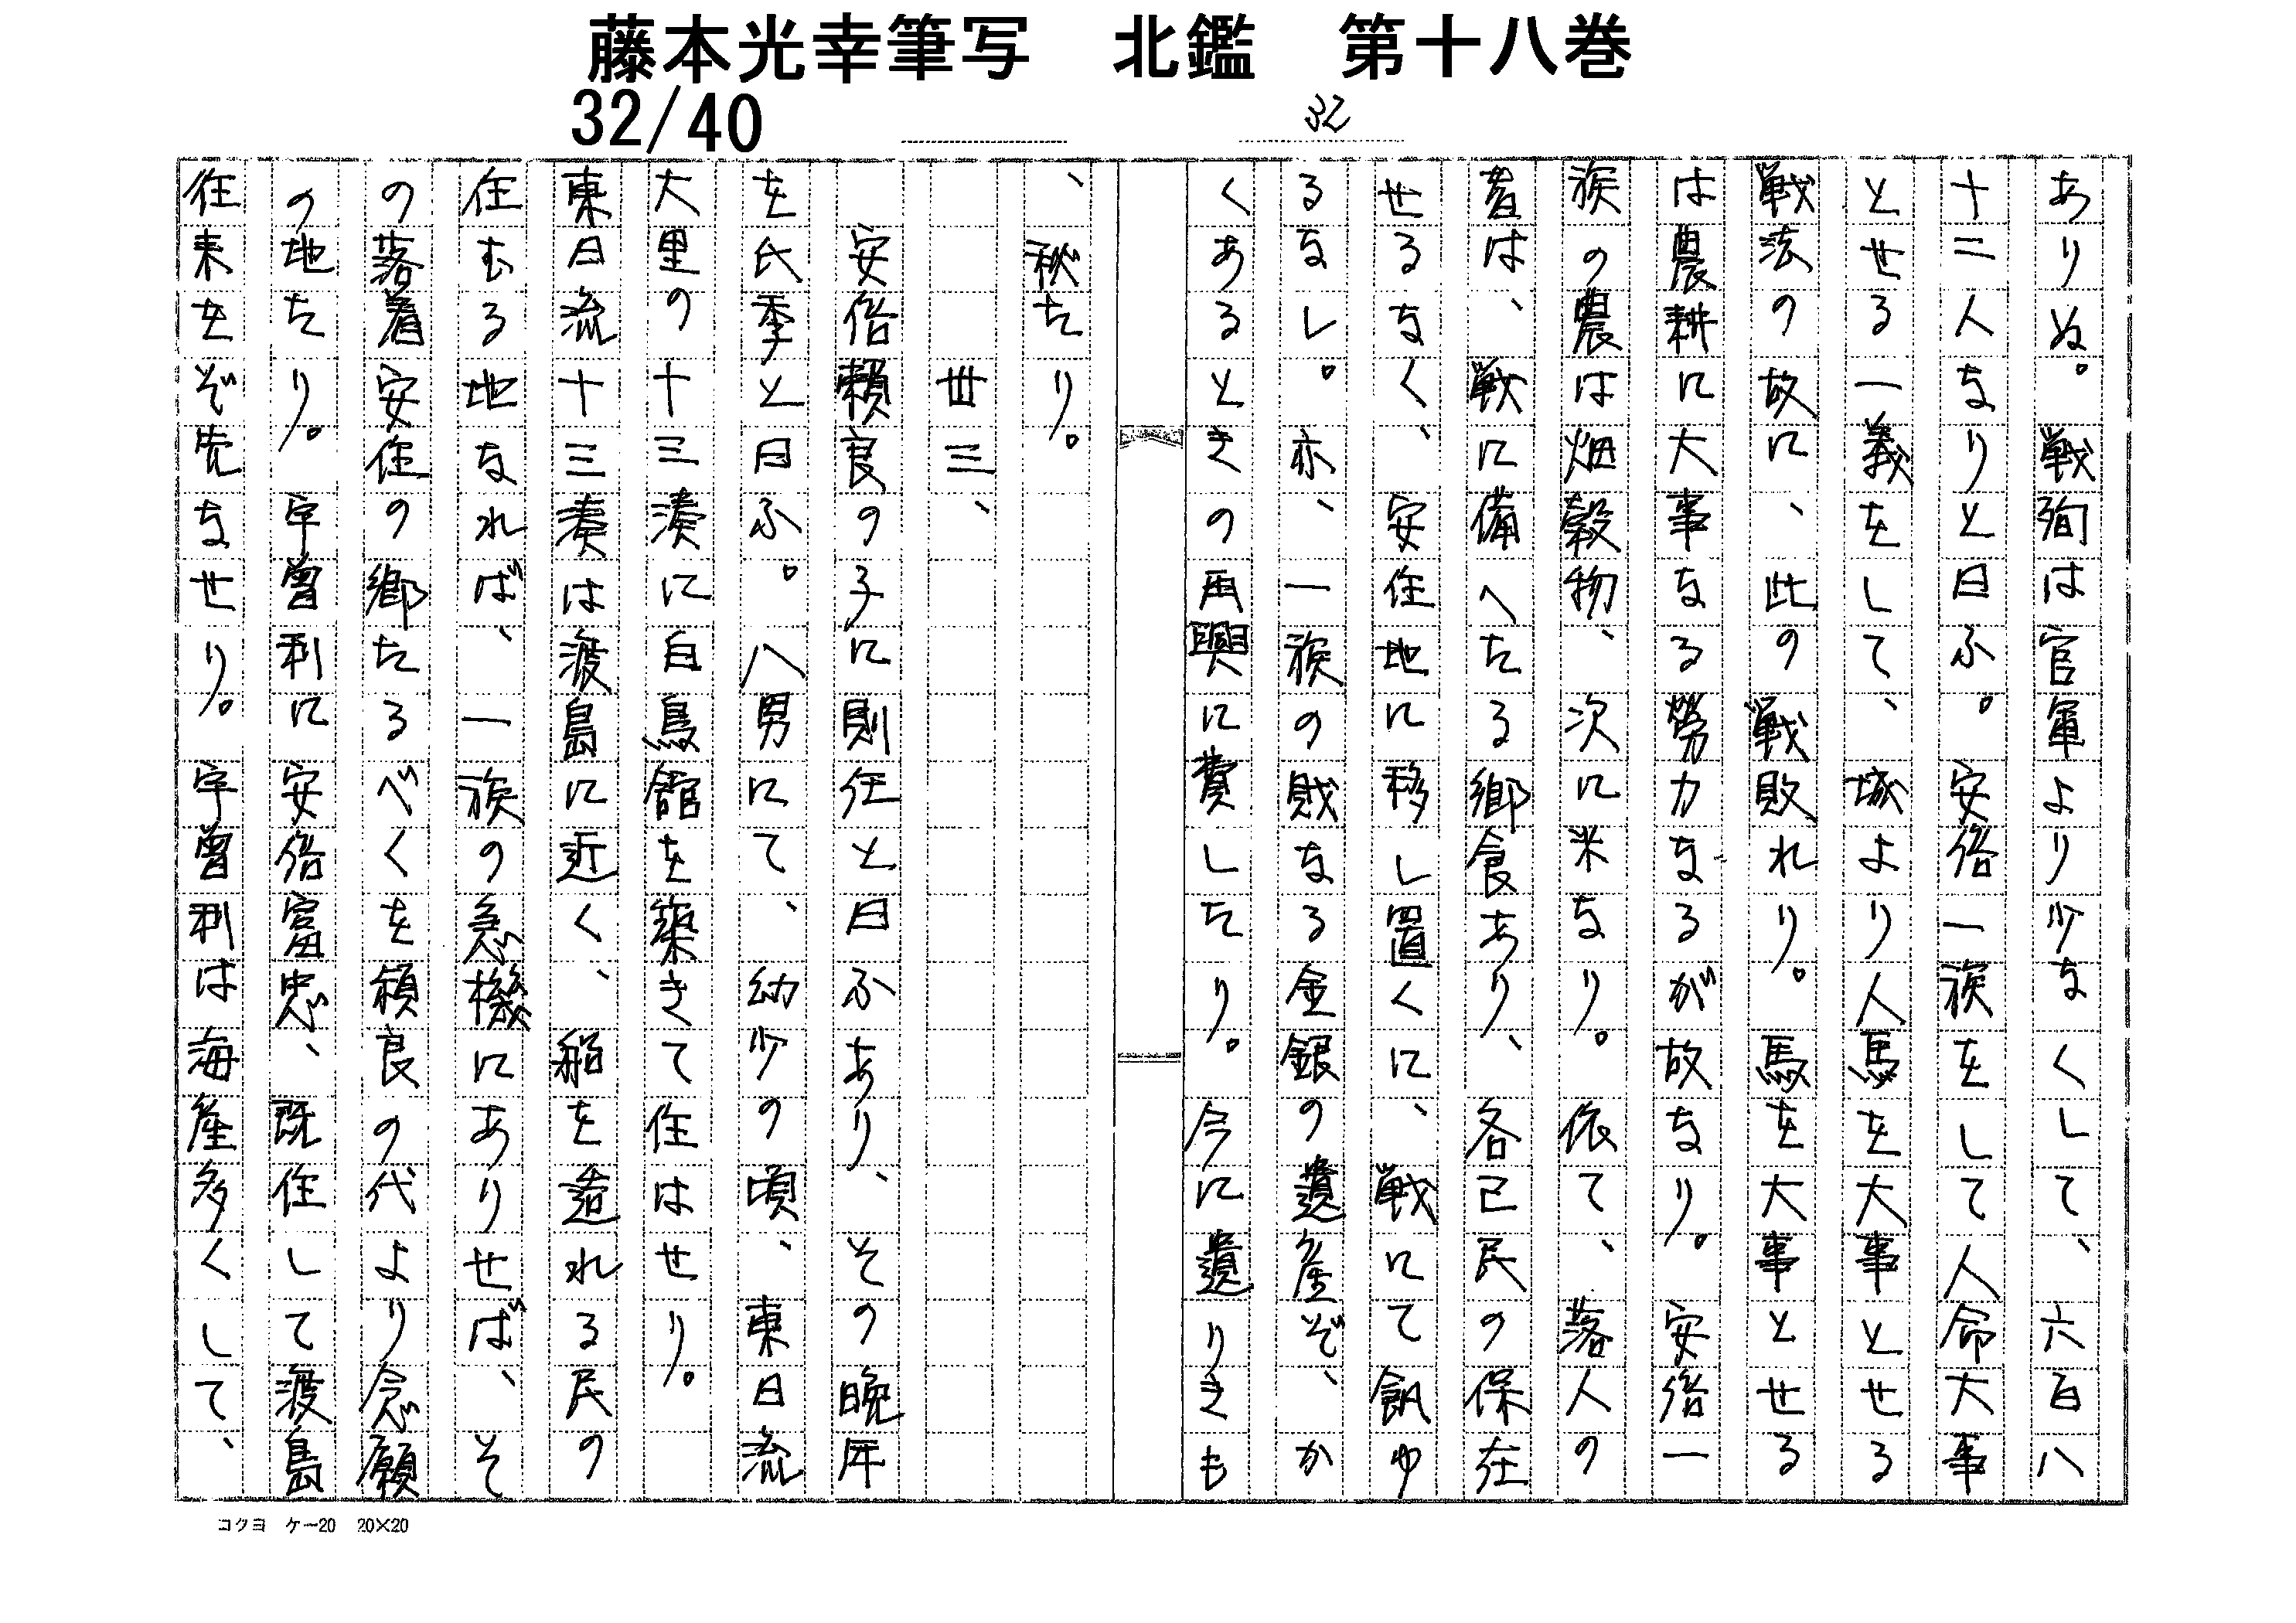 藤本光幸筆写　北鑑　第十八巻
32/40
32
ありぬ。戦殉は官軍より少なくして、六百八
十二人なりと曰ふ。安倍一族をして人命大事
とせる一義をして、城より人馬を大事とせる
戦法の故に、此の戦敗れり。馬を大事とせる
は農耕に大事なる労力なるが故なり。安倍一
族の農は畑穀物、次に米なり。依て、落人の
者は、戦に備へたる郷倉あり、各己民の保在
せるなく、安住地に移し置くに、戦にて飢ゆ
るなし。亦、一族の財なる金銀の遺産ぞ、か
くあるときの再興に費したり。今に遺りきも
、秘たり。
丗三、
安倍頼良の子に則任と曰ふあり、その晩年
を氏季と曰ふ。八男にて、幼少の頃、東日流
大里の十三湊に白鳥舘を築きて住はせり。
東日流十三湊は渡島に近く、稲を造れる民の
住むる地なれば、一族の急機にありせば、そ
の落着安住の郷たるべくを頼良の代より念願
の地たり。宇曽利に安倍富忠、既住して渡島
往来をぞ先なせり。宇曽利は海産多くして、
コクヨ　ケー20　20×20